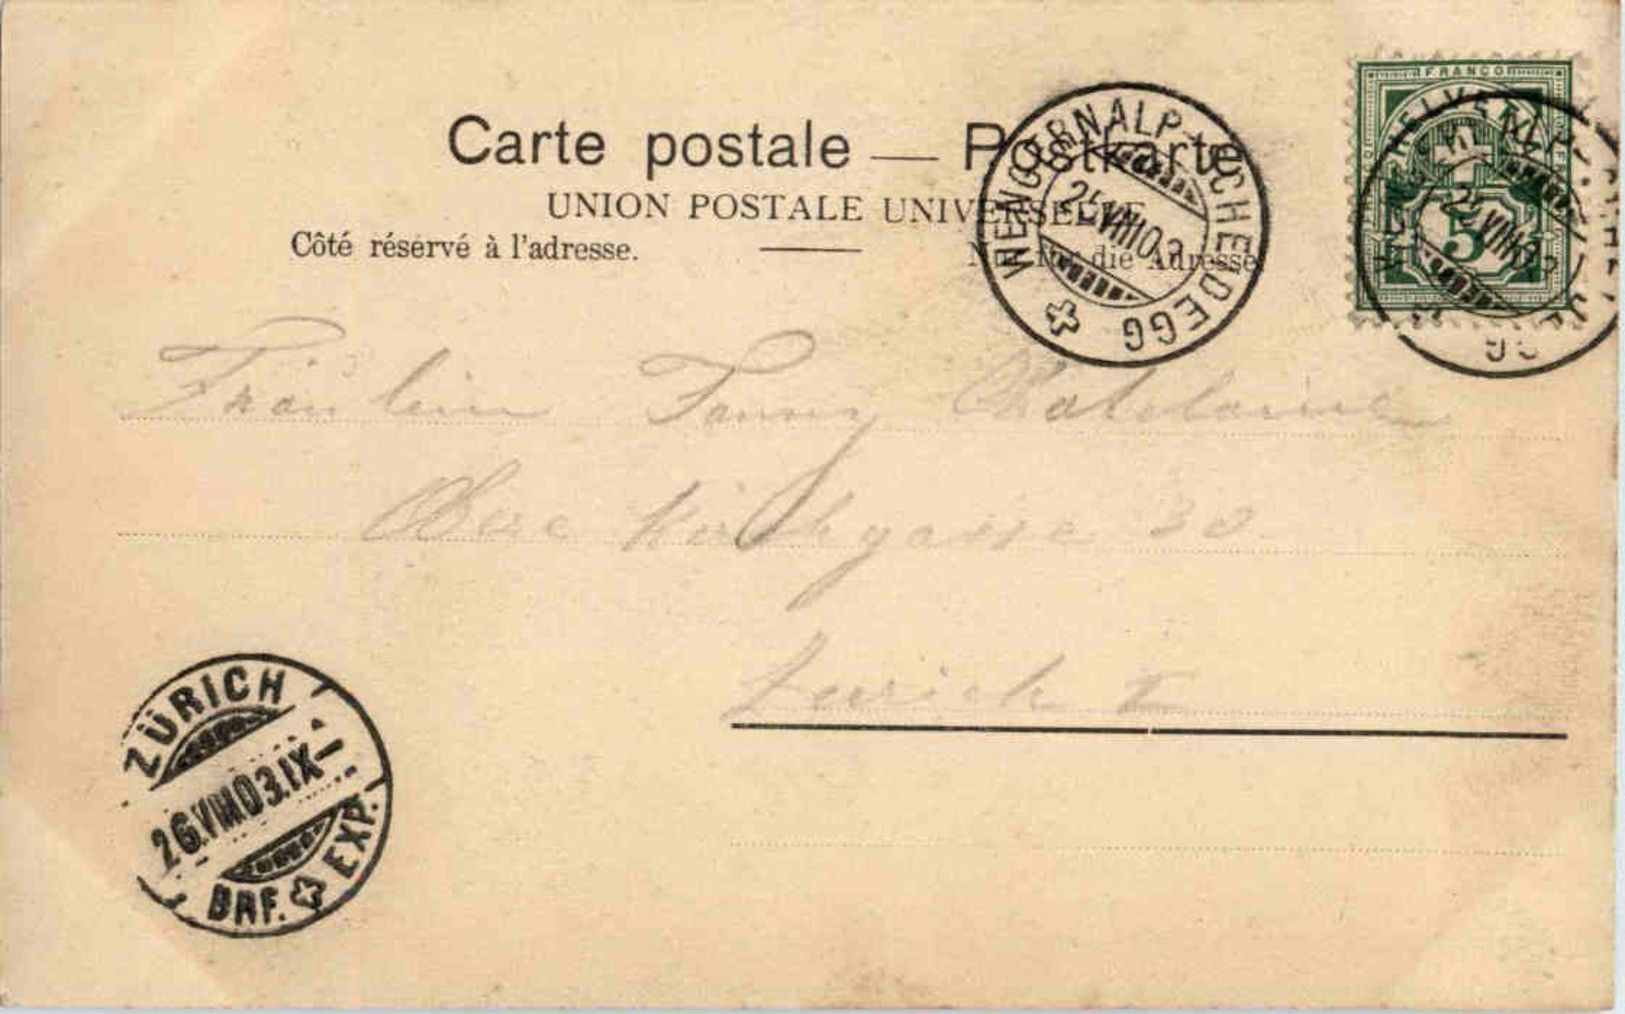 FRANCO
HELVETIA
5
Carte postale — Postkarte
UNION POSTALE UNIVERSELLE
Côté réservé à l'adresse. Nur für die Adresse
WENGERNALP-SCHEIDEGG
VIII 03
Fräulein Fanny Chatelaine
Obere Kirchgasse 30
Zürich I
ZÜRICH
26.VIII.03.IX-
BRF. EXP.